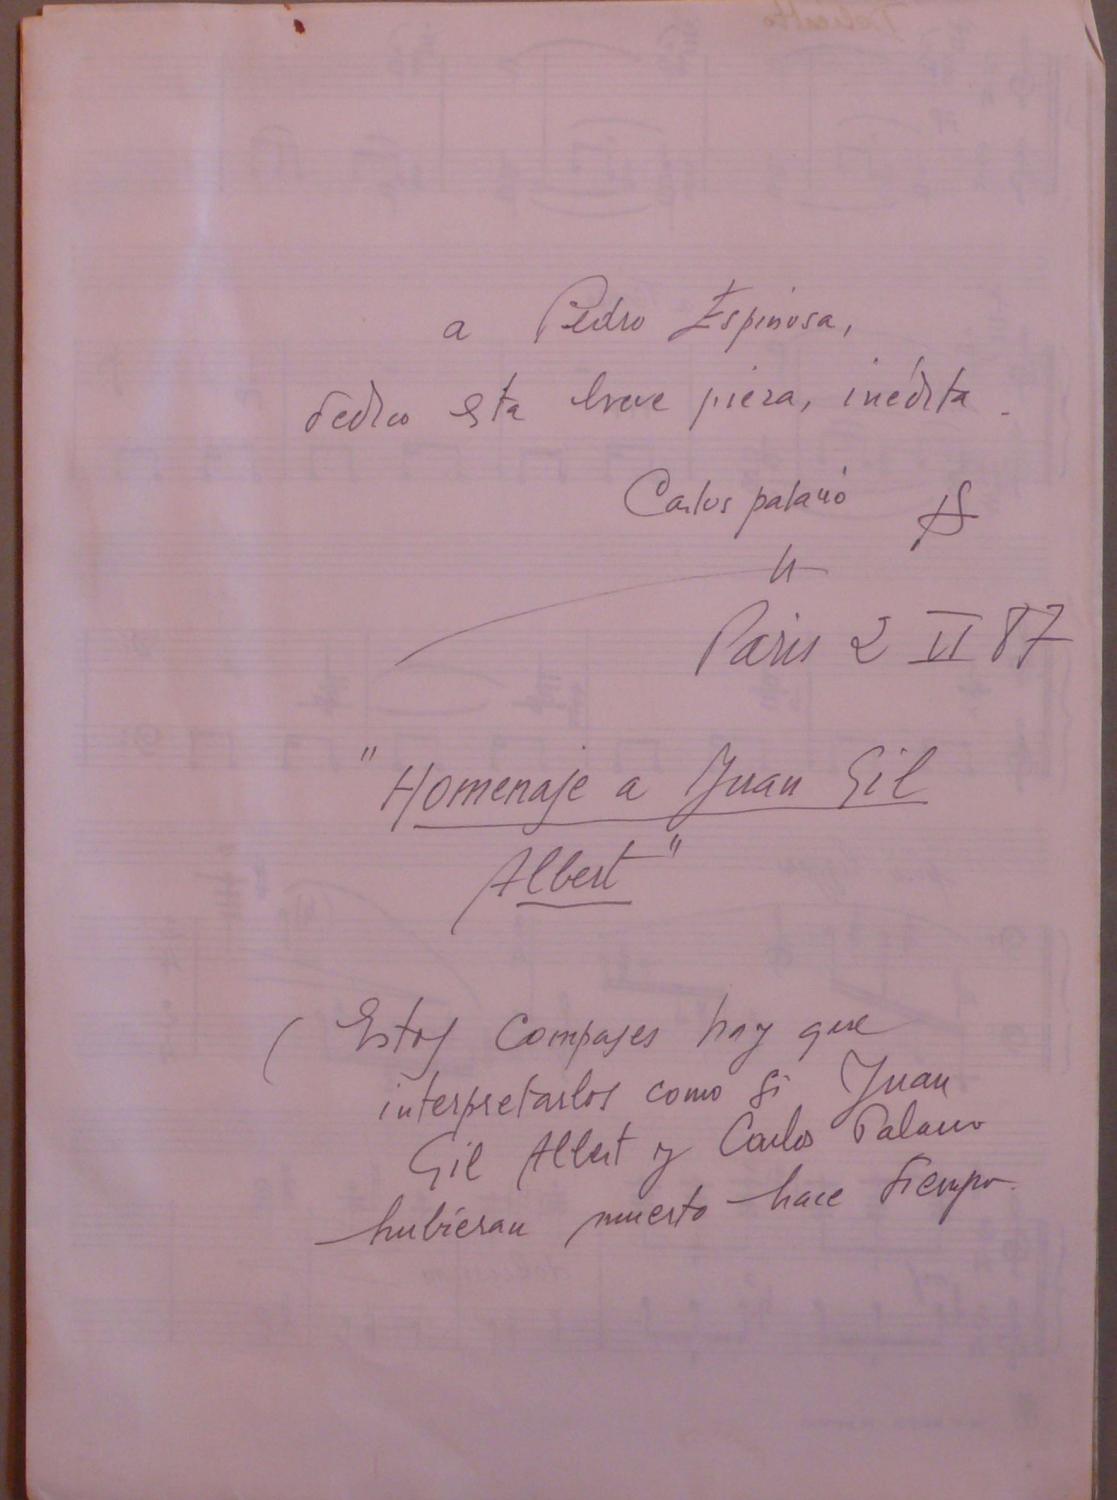 a Pedro Espinosa,
dedico esta breve pieza, inédita.
Carlos palacio
Paris 2 VI 87
"Homenaje a Juan Gil
Albert"
(Estos compases hay que
interpretarlos como si Juan
Gil Albert y Carlos Palacio
hubieran muerto hace tiempo.